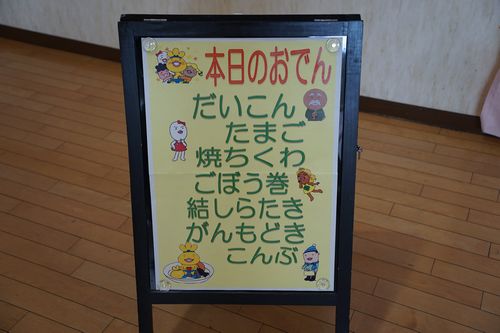 本日のおでん
だいこん
たまご
焼ちくわ
ごぼう巻
結しらたき
がんもどき
こんぶ